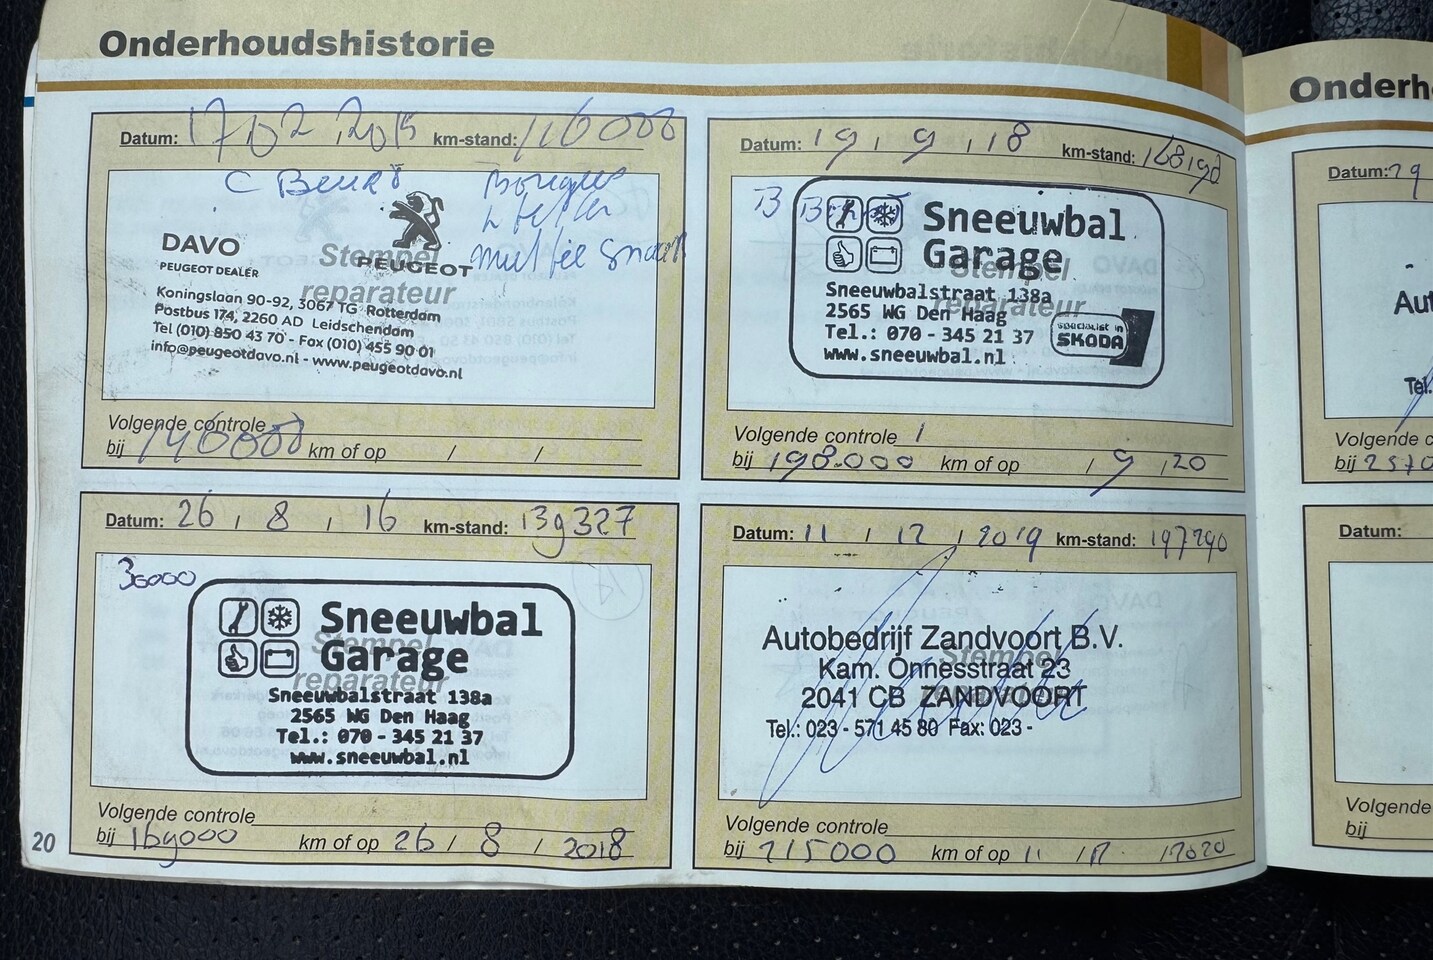 Onderhoudshistorie
Datum: 17 02 2015 km-stand: 116000
C Beurt
Bougies
multie snaar
Stempel
reparateur
DAVO
PEUGEOT DEALER
PEUGEOT
Koningslaan 90-92, 3067 TG Rotterdam
Postbus 174, 2260 AD Leidschendam
Tel (010) 850 43 70 - Fax (010) 455 90 01
info@peugeotdavo.nl - www.peugeotdavo.nl
Volgende controle
bij 146000 km of op / /
Datum: 19 , 9 , 18 km-stand:
B
Sneeuwbal
Garage
Stempel
reparateur
Sneeuwbalstraat 138a
2565 WG Den Haag
Tel.: 070 - 345 21 37
www.sneeuwbal.nl
specialist in
SKODA
Volgende controle /
bij 198.000 km of op / 9 , 20
Datum: 26 , 8 , 16 km-stand: 139327
30000
Sneeuwbal
Garage
Stempel
reparateur
Sneeuwbalstraat 138a
2565 WG Den Haag
Tel.: 070 - 345 21 37
www.sneeuwbal.nl
Volgende controle
bij 169000 km of op 26 / 8 / 2018
Datum: 11 / 12 , 2019 km-stand: 197290
Autobedrijf Zandvoort B.V.
Stempel
Kam. Onnesstraat 23
2041 CB ZANDVOORT
Tel.: 023 - 571 45 80 Fax: 023 -
Volgende controle
bij 215000 km of op 11 / 12 / 2020
20
Onderh
Datum: 29
Aut
Tel.
Volgende c
bij 2570
Datum:
Volgende
bij